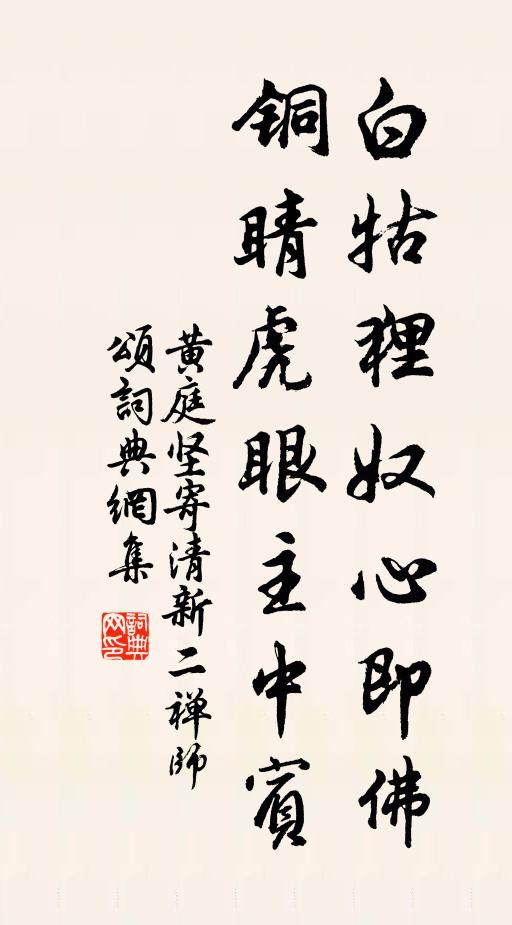 白牯狸奴心即佛
铜睛虎眼主中賓
黄庭坚寄清新二禅师
頌詞典網集
詞典网印